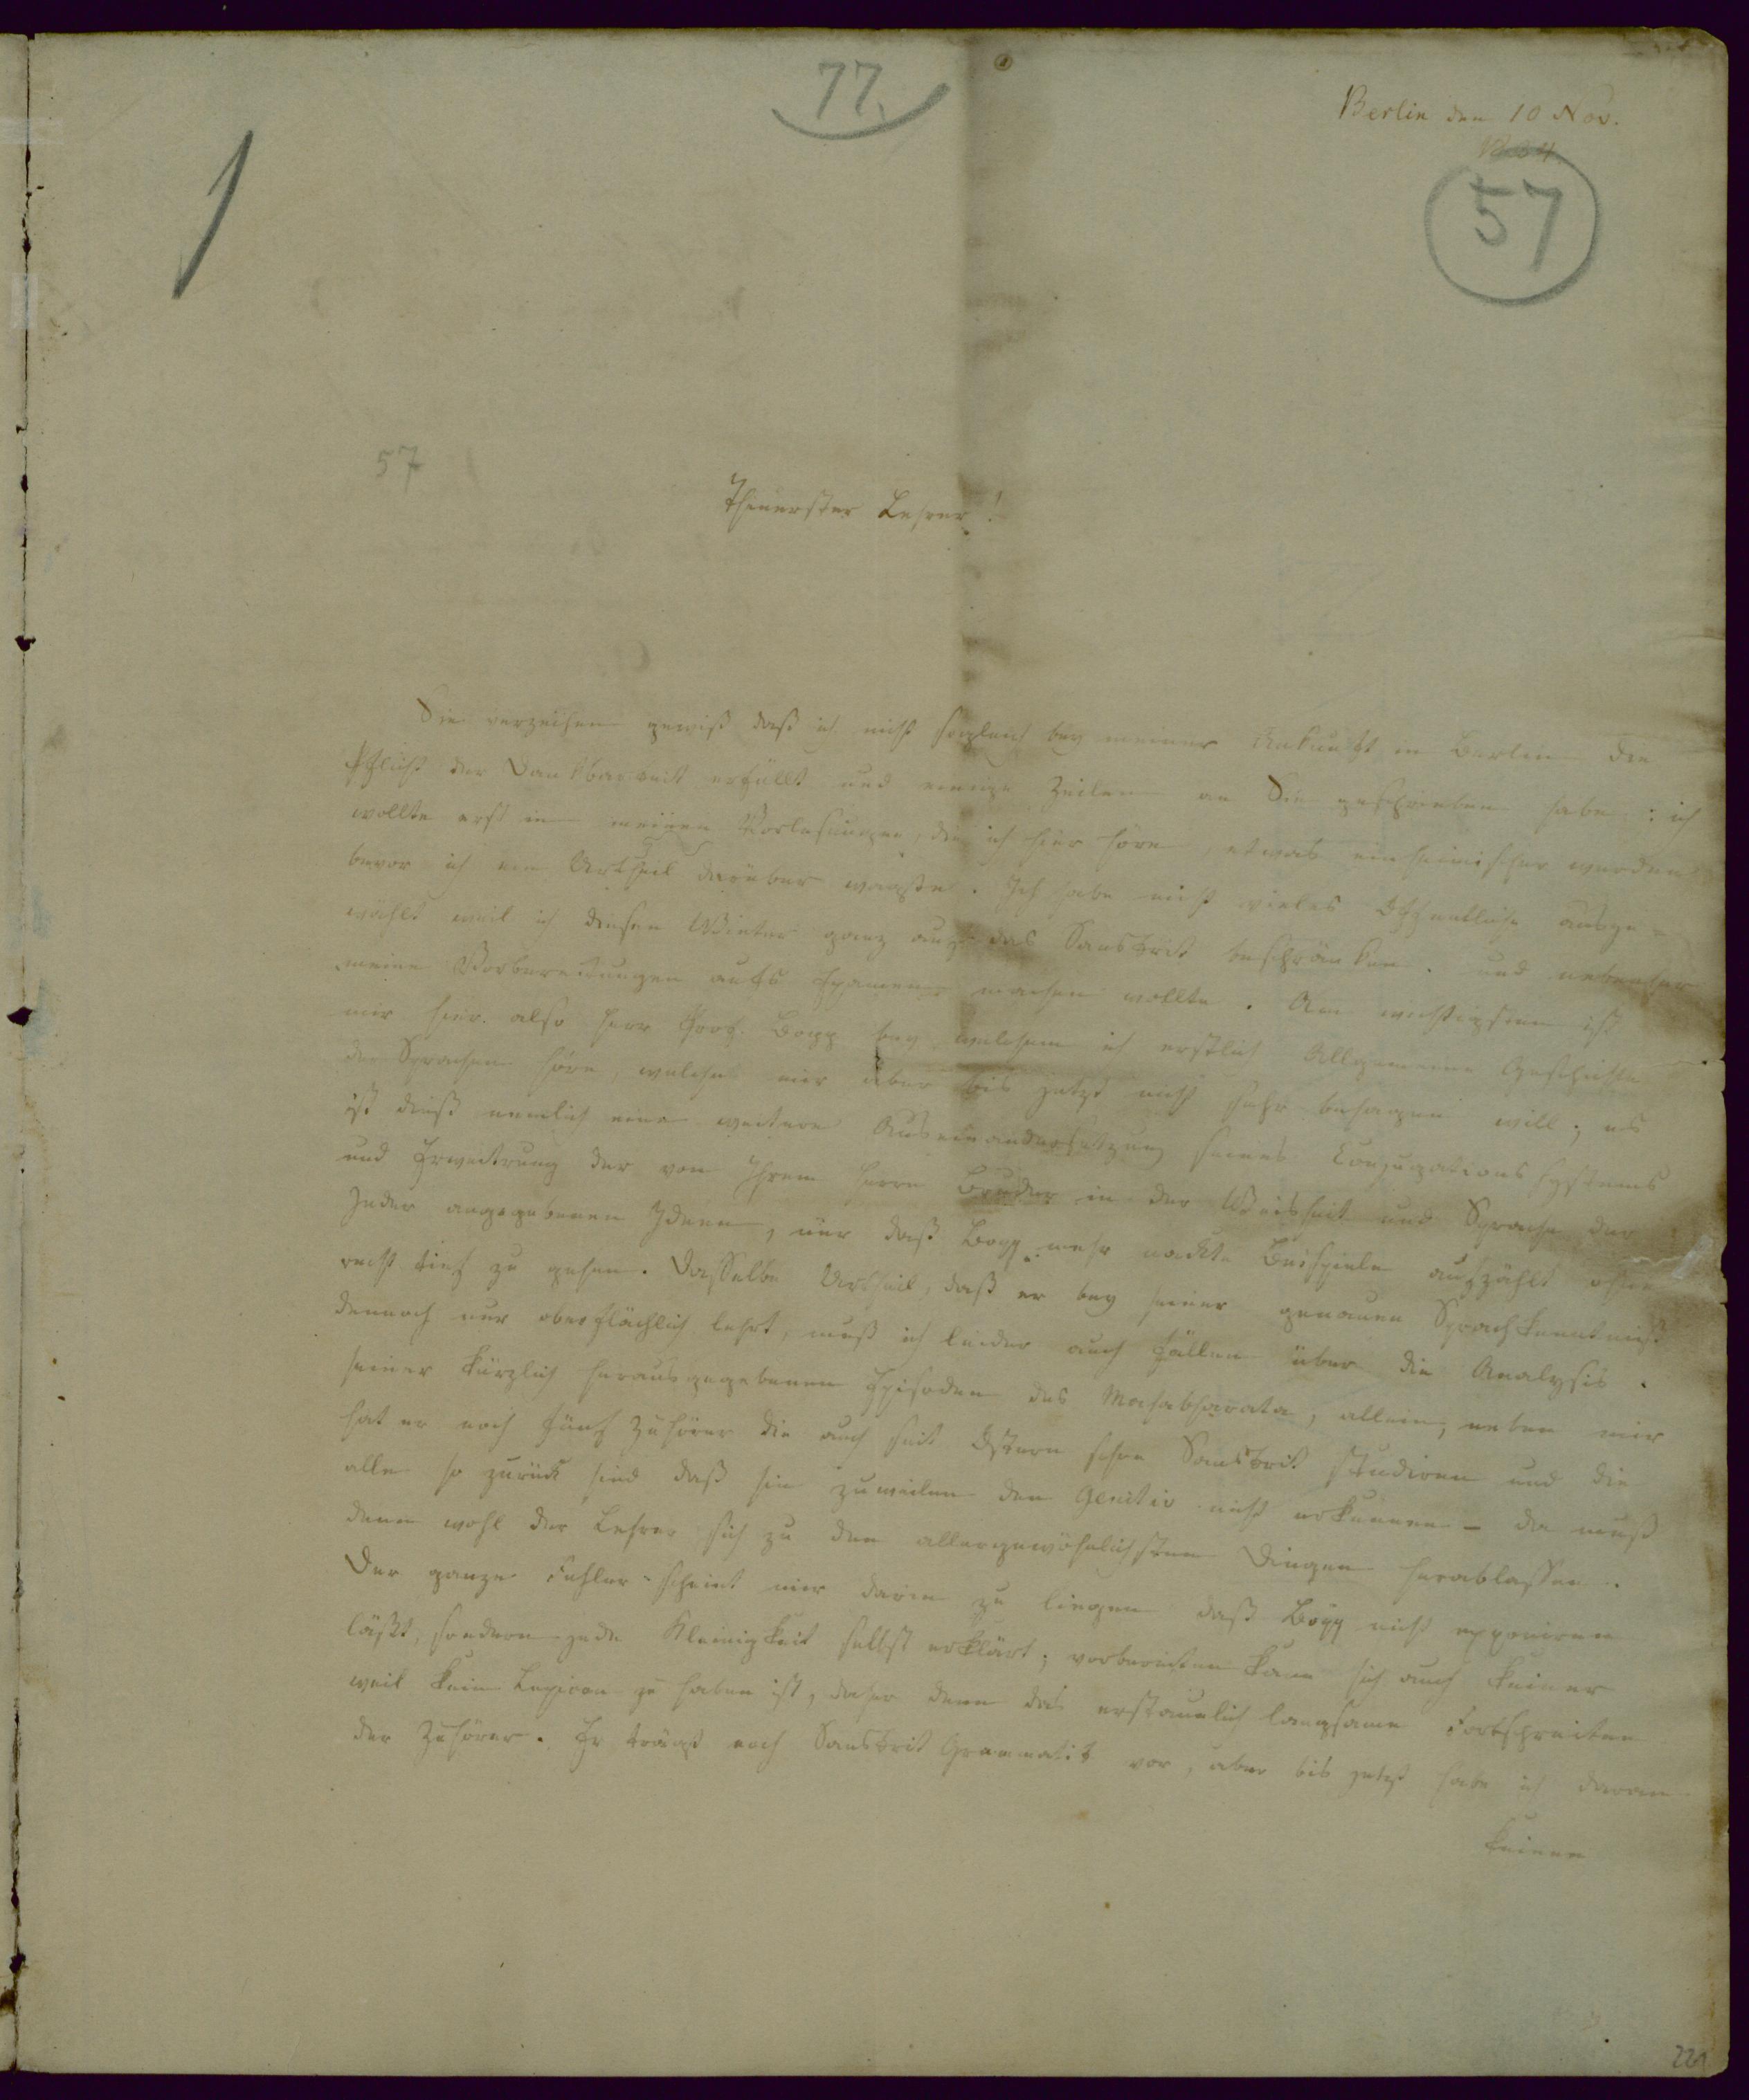 77.
Berlin den 10 Nov.
1824.
57
57
Theuerster Lehrer!
Sie verzeihen gewiß daß ich nicht sogleich bey meiner Ankunft in Berlin die
Pflicht der Dankbarkeit erfüllt und einige Zeilen an Sie geschrieben habe: ich
wollte erst in meinen Vorlesungen, die ich hier höre, etwas einheimischer werden
bevor ich ein Urtheil darüber wagte. Ich habe nicht vieles Öffentliche ausge-
wählt weil ich diesen Winter ganz aufs das Sanskrit beschränken und nebenher
meine Vorbereitungen aufs Examen machen wollte. Am wichtigsten ist
mir hier also Herr Prof. Bopp bey welchem ich erstlich Allgemeine Geschichte
der Sprachen höre, welche mir aber bis jetzt nicht sehr behagen will; es
ist dieß nemlich eine weitere Auseinandersetzung seines Conjugationssystems
und Erweitrung der von Ihrem Herrn Bruder in der Weisheit und Sprache der
Inder angegebenen Ideen, nur daß Bopp mehr nackte Beispiele aufzählt ohne
recht tief zu gehen. Dasselbe Urtheil, daß er bey seiner genauen Sprachkenntniß
dennoch nur oberflächlich lehrt, muß ich leider auch fällen über die Analysis
seiner kürzlich herausgegebenen Episoden des Mahabharata, allein, neben mir
hat er noch fünf Zuhörer die auch seit Ostern schon Sanskrit studiren und die
alle so zurück sind daß sie zuweilen den Genitiv nicht erkennen – da muß
denn wohl der Lehrer sich zu den allergewöhnlichsten Dingen herablassen.
Der ganze Fehler scheint mir darin zu liegen daß Bopp nicht exponiren
läßt, sondern jede Kleinigkeit selbst erklärt; vorbereiten kann sich auch keiner
weil kein Lexicon zu haben ist, daher denn das erstaunlich langsame Fortschreiten
der Zuhörer. Er trägt noch Sanskrit Grammatik vor, aber bis jetzt habe ich daran
keinen
221